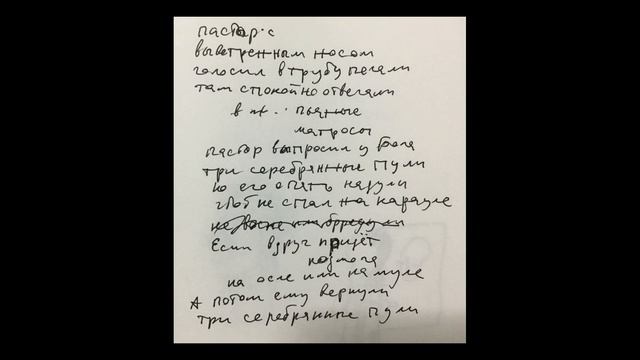 пастор с
выветренным носом
голосил в трубу печали
там спокойно отвечали
в ж... пьяные
матросы
пастор выпросил у бога
три серебрянные пули
но его опять надули
чтоб не спал на карауле
Если вдруг придёт
подмога
на осле или на муле
А потом ему вернули
три серебрянные пули